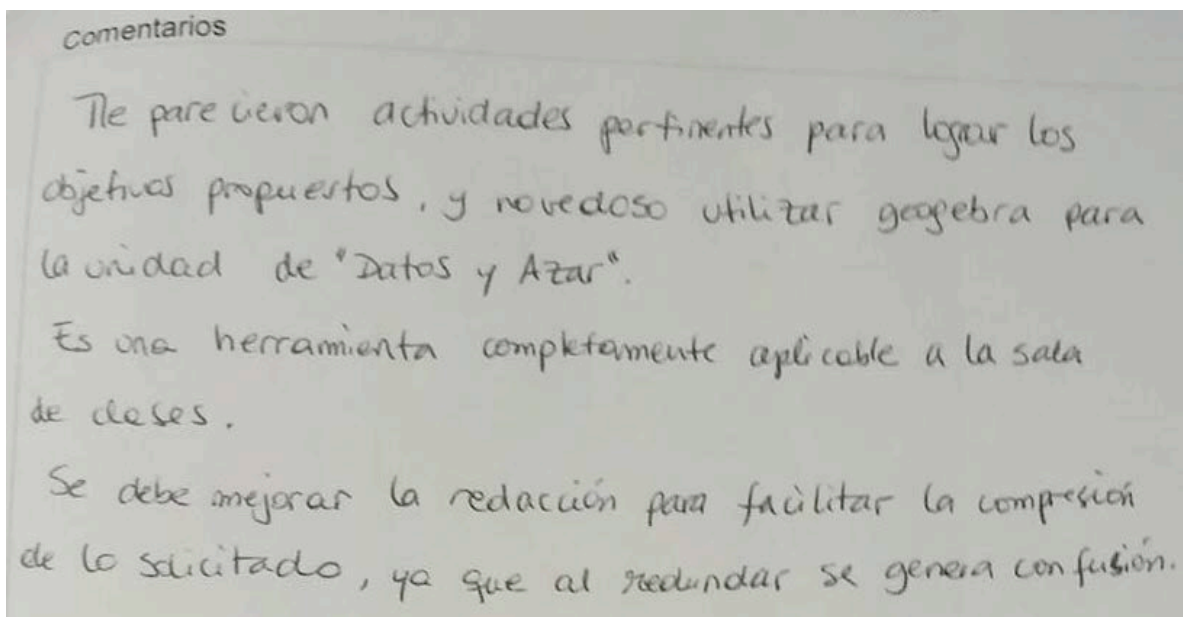 Comentarios
Me parecieron actividades pertinentes para lograr los
objetivos propuestos, y novedoso utilizar geogebra para
la unidad de "Datos y Azar".
Es una herramienta completamente aplicable a la sala
de clases.
Se debe mejorar la redacción para facilitar la compresión
de lo solicitado, ya que al redundar se genera confusión.